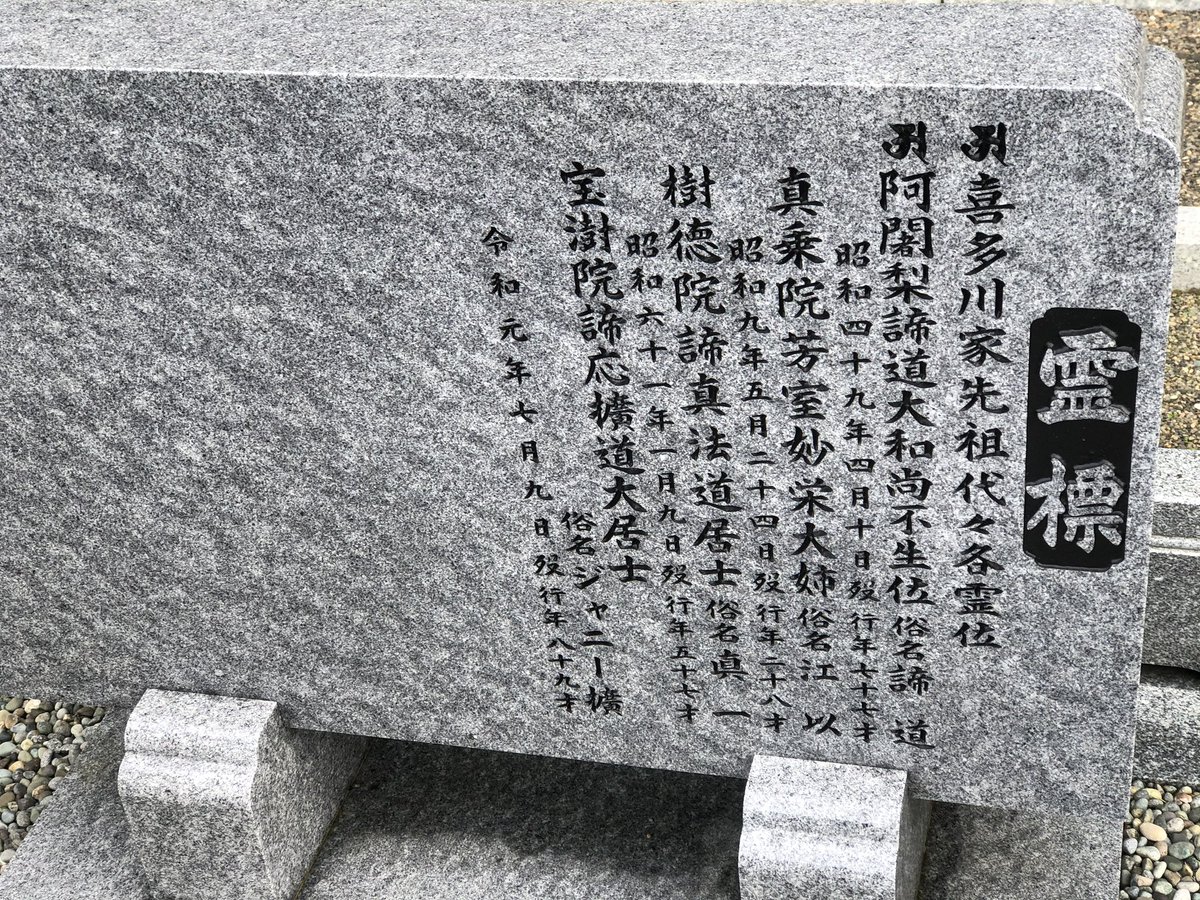 霊標
喜多川家先祖代々各霊位
阿闍梨諦道大和尚不生位 俗名 諦道
昭和四十九年四月十日歿 行年七十七才
真乗院芳室妙栄大姉 俗名 江以
昭和九年五月二十四日歿 行年二十八才
樹徳院諦真法道居士 俗名 眞一
昭和六十一年一月九日歿 行年五十七才
宝澍院諦応擴道大居士 俗名 ジャニー擴
令和元年七月九日歿 行年八十九才